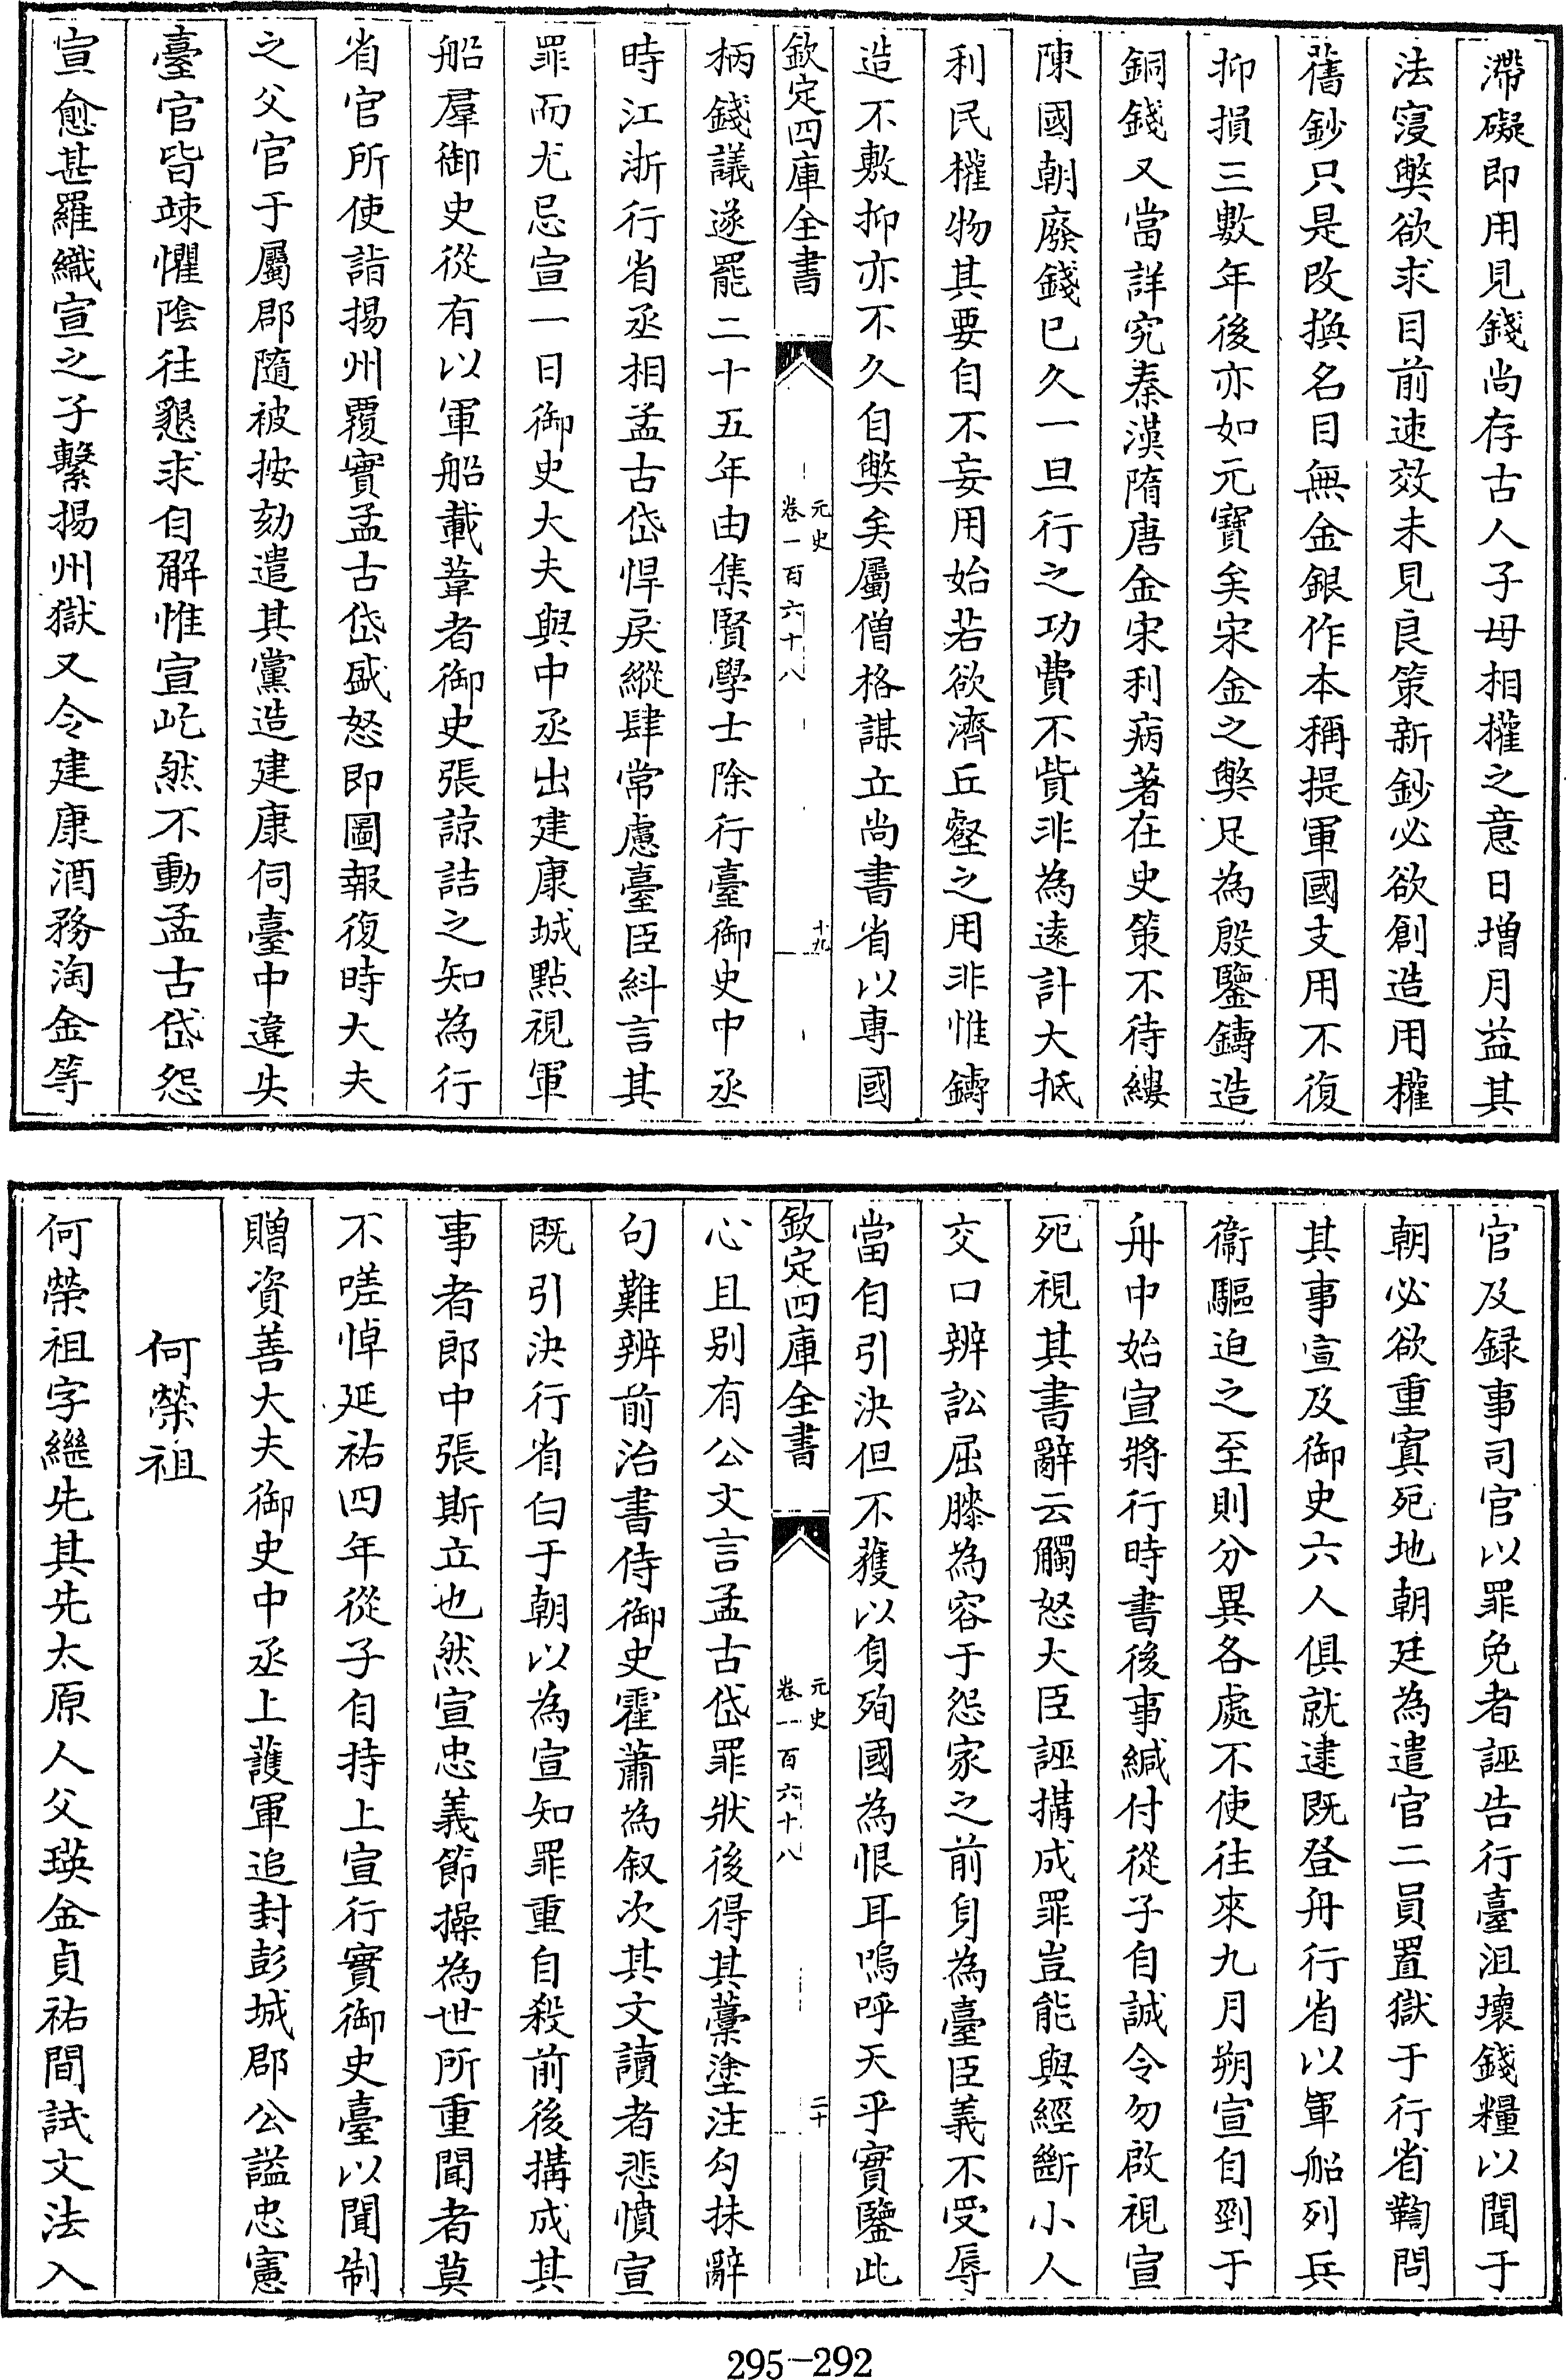 滯礙即用見錢尚存古人子母相權之意日增月益其
法寖弊欲求目前速效未見良策新鈔必欲創造用權
舊鈔只是改換名目無金銀作本稱提軍國支用不復
抑損三數年後亦如元寶矣宋金之弊足為殷鑒鑄造
銅錢又當詳究秦漢隋唐金宋利病著在史策不待縷
陳國朝廢錢已久一旦行之功費不貲非為遠計大抵
利民權物其要自不妄用始若欲濟丘壑之用非惟鑄
造不敷抑亦不久自弊矣屬僧格謀立尚書省以專國
欽定四庫全書
元史
卷一百六十八
十九
柄錢議遂罷二十五年由集賢學士除行臺御史中丞
時江浙行省丞相孟古岱悍戾縱肆常慮臺臣糾言其
罪而尤忌宣一日御史大夫與中丞出建康城點視軍
船羣御史從有以軍船載葦者御史張諒詰之知為行
省官所使詣揚州覆實孟古岱盛怒即圖報復時大夫
之父官于屬郡隨被按劾遣其黨造建康伺臺中違失
臺官皆竦懼陰往懇求自解惟宣屹然不動孟古岱怨
宣愈甚羅織宣之子繫揚州獄又令建康酒務淘金等
官及録事司官以罪免者誣告行臺沮壞錢糧以聞于
朝必欲重寘死地朝廷為遣官二員置獄于行省鞫問
其事宣及御史六人俱就逮既登舟行省以軍船列兵
衞驅迫之至則分異各處不使往來九月朔宣自剄于
舟中始宣將行時書後事緘付從子自誠令勿啟視宣
死視其書辭云觸怒大臣誣搆成罪豈能與經斷小人
交口辨訟屈膝為容于怨家之前身為臺臣義不受辱
當自引決但不獲以身殉國為恨耳嗚呼天乎實鑒此
欽定四庫全書
元史
卷一百六十八
二十
心且别有公文言孟古岱罪狀後得其藁塗注勾抹辭
句難辨前治書侍御史霍蕭為叙次其文讀者悲憤宣
既引決行省白于朝以為宣知罪重自殺前後搆成其
事者郎中張斯立也然宣忠義節操為世所重聞者莫
不嗟悼延祐四年從子自持上宣行實御史臺以聞制
贈資善大夫御史中丞上護軍追封彭城郡公謚忠憲
何榮祖
何榮祖字繼先其先太原人父瑛金貞祐間試文法入
295-292